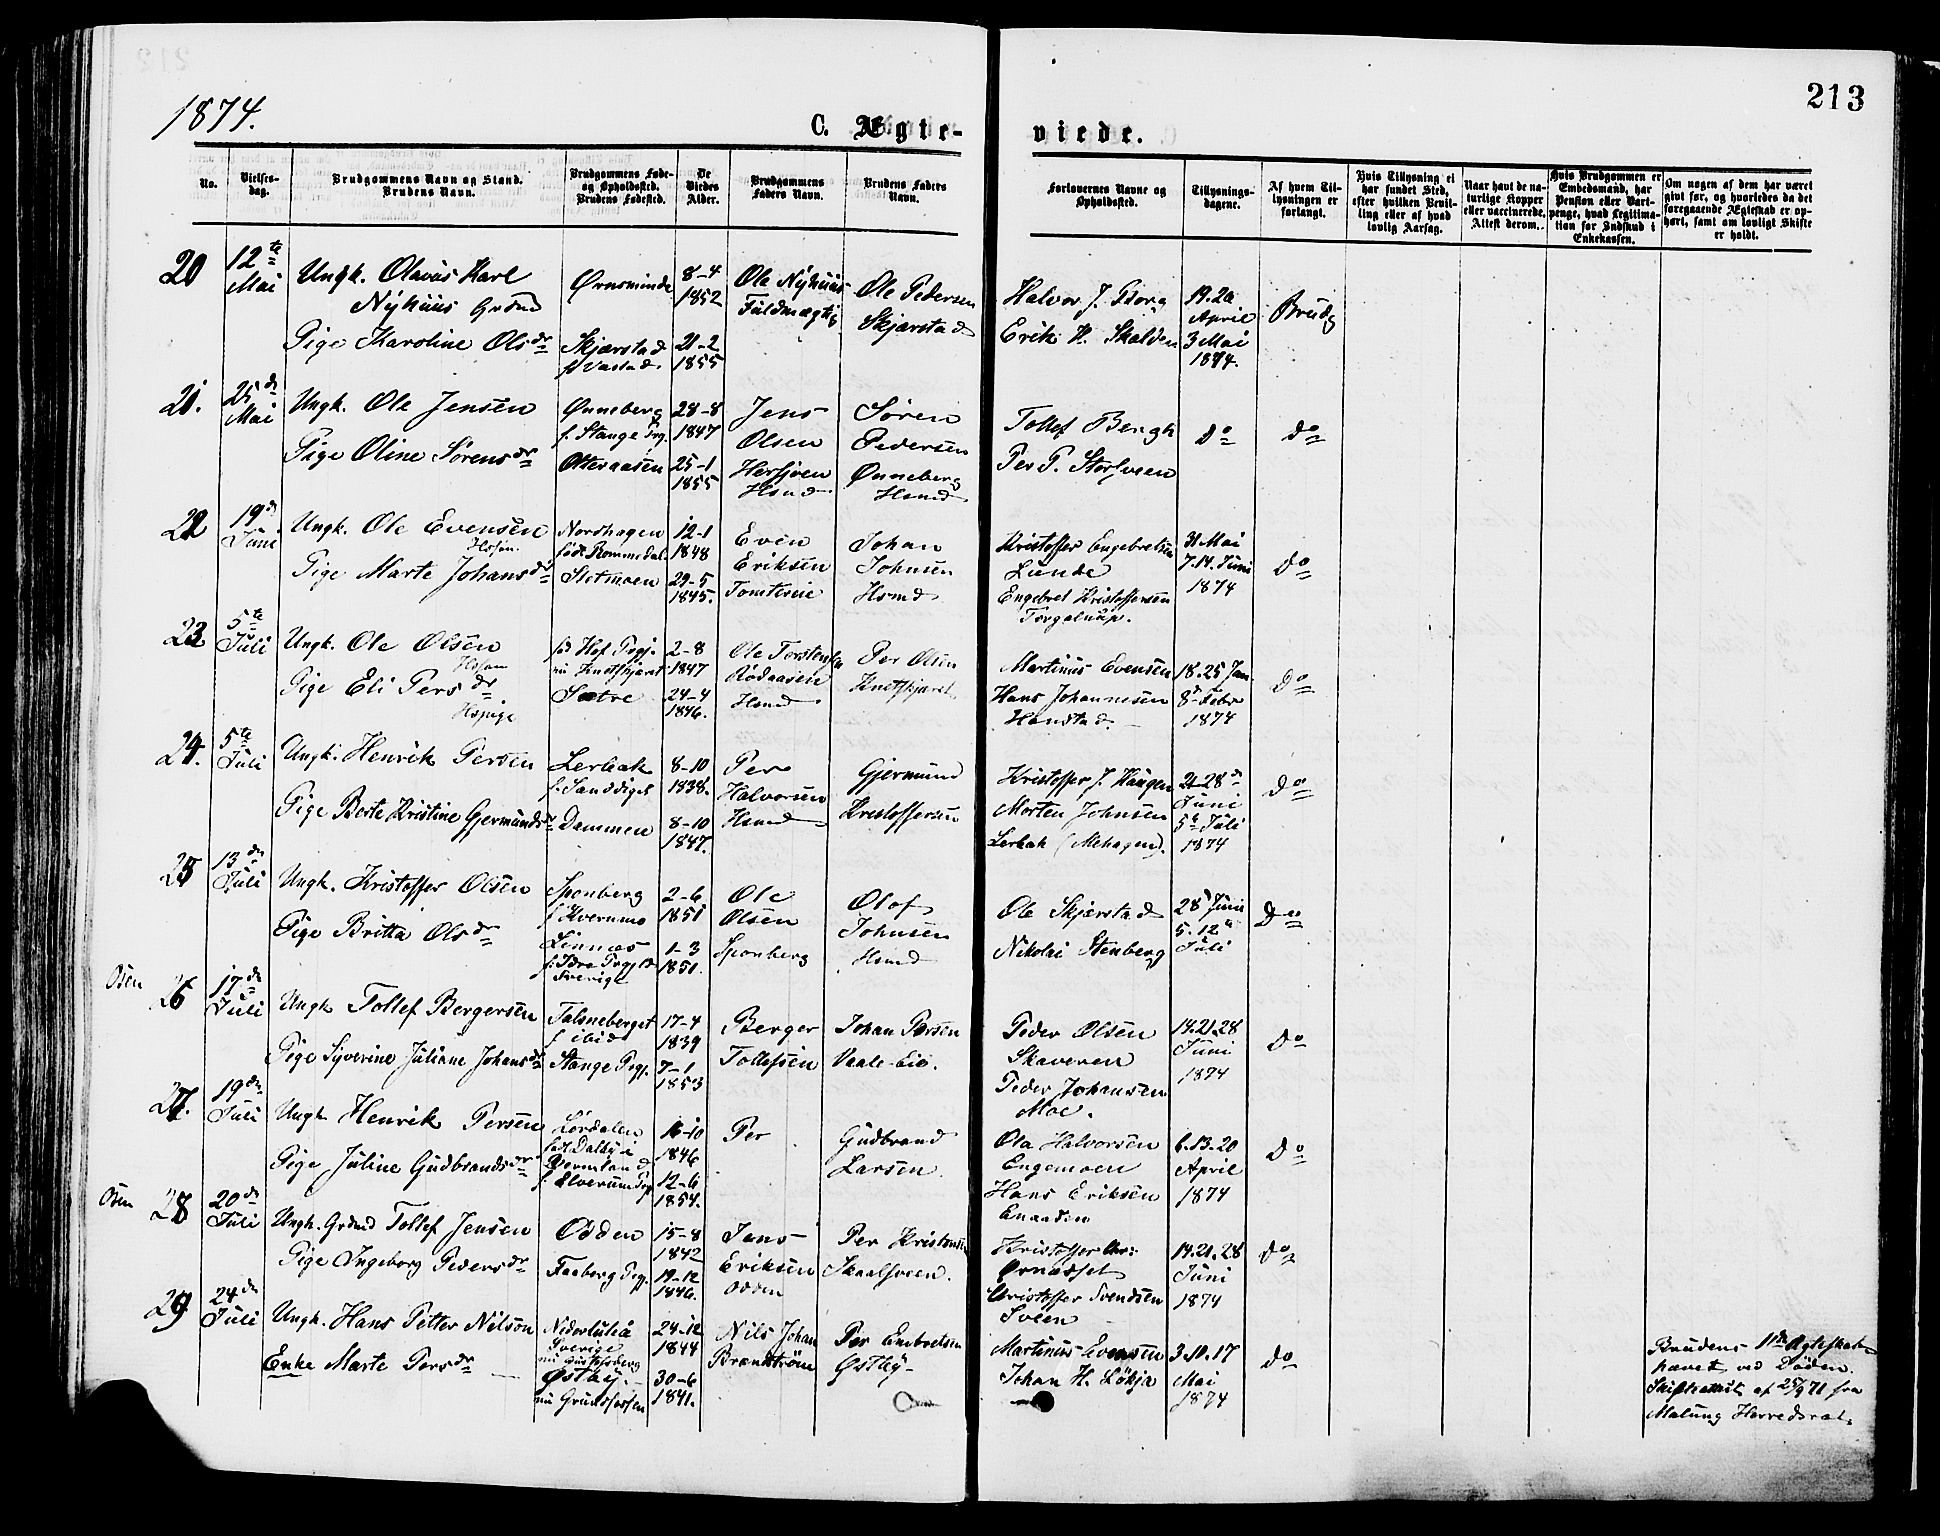 213
1874.
C. Ægte-
viede.
No.
Vielses-
dag.
Brudgommens Navn og Stand.
Brudens Navn.
Brudgommens Føde-
og Opholdssted.
Brudens Fødested.
De
Viedes
Alder.
Brudgommens
Faders Navn.
Brudens Faders
Navn.
Forlovernes Navne og
Opholdssted.
Tillysnings-
dagene.
Af hvem Til-
lysningen er
forlangt.
Hvis Tillysning ei
har fundet Sted,
efter hvilken Bevil-
ling eller af hvad
lovlig Aarsag.
Naar havt de na-
turlige Kopper
eller vaccinerede.
Attest derom.
Hvis Brudgommen er
Embedsmand, har
Pension eller Vart-
penge, hvad Legitima-
tion for Indskud i
Enkekassen.
Om nogen af dem har været
givt før, og hvorledes da det
foregaaende Ægteskab er op-
hørt, samt om lovligt Skifte
er holdt.
20
12te
Mai
Ungk. Olavus Karl
Nyhuus Grdmd
Pige Karoline Olsdr
Ørnsminde
Skjærstad
8-4
1852
21-2
1855
Ole Nyhuus
Fuldmægtig
Ole Pedersen
Skjærstad
Halvor J.
Erik H. Skalden
19.26
April
3 Mai
1874.
Brudg
21.
25de
Mai
Ungk. Ole Jensen
Pige Oline Sørensdr
Ønneberg
f. Stange Prg.
Otteraasen
28-8
1847
25-1
1855
Jens
Olsen
Hersjoen
Hsmd
Søren
Pedersen
Ønneberg
Hsmd
Tollef Bergh
Per P. Storsveen
do
do
22
19de
Juni
Ungk. Ole Evensen
Pige Marte Johansdr
Nordhagen
født Rommedal
Sletmoen
12-1
1848
29-5
1845.
Even
Eriksen
Tomteeie
Johan
Johnsen
Hsmd
Kristoffer Engebretsen
Lunde
Engebret Kristoffersen
31 Mai
7.14. Juni
1874
do
23
5te
Juli
Ungk. Ole Olsen
Pige Eli Persdr
Hspige
fød Hof Prgj.
Sætre
2-8
1847
24-4
1846.
Ole Torstensen
Rödaasen
Hsmd
Per Olsen
Martinus Evensen
Hans Johannesen
Handstad
18.25 Jan
8de Febr
1874
do
24.
5te
Juli
Ungk. Henrik Persen
Pige Berte Kristine Gjermundsdr
Lerbak
Dammen
8-10
1838.
8-10
1847.
Per
Halvorsen
Hsmd
Gjermund
Kristoffersen
Kristoffer J. Haugen
Morten Johnsen
Lerbak (Mehagen).
21-28de
Juni
5te Juli
1874
do
25
13de
Juli
Ungk. Kristoffer Olsen
Pige Britta Olsdr
Sponberg
f. Kvernmo
Linnæs
f. Idre Prgj
Sverige
2-6
1851
1-3
1851.
Ole
Olsen
Sponberg
Olof
Johnsen
Hsmd
Ole Skjærstad
Nikolai Stenberg
28 Juni
5.12
Juli
Do
Osen
26
17de
Juli
Ungk Tollef Bergersen
Pige Syverine Juliane Johansdr
Talsneberget
f ibid
Stange Prgj.
17-4
1839
7-1
1853
Berger
Tollefsen
Johan Persen
Vaale-Eie.
Peder Olsen
Skaveren
Peder Johansen
Moe.
14.21.28
Juni
1874
do
27.
19de
Juli
Ungk Henrik Persen
Pige Juline Gudbrandsdr
Lørdalen
født Dalby i
Vermland
f. Elverum Prg
16-10
1846
12-6
1854.
Per
Gudbrand
Larsen
Ola Halvorsen
Engemoen
Hans Eriksen
Enaaden
6.13.20
April
1874
do
Osen
28
20de
Juli
Ungk. Grdmd Tollef Jensen
Pige Ingeborg Pedersdr
Odden
Faaberg Prgj.
15-8
1842
19-12
1846.
Jens
Eriksen
Odden
Per Kristensen
Skaalsveen.
Kristoffer Chr:
Ørnæsset
Kristoffer Svendsen
Sveen
14.21.28
Juni
1874
do
29
24de
Juli
Ungk. Hans Petter Nilson
Enke Marte Persdr
Niderluleå
Sverige
Østby.
nu Grundfossen
24-12
1844
30-6
1841.
Nils Johan
Brænström
Per Embretsen
Østby
Martinus Evensen
Johan H. Løkja
3.10.17
Mai
1874
do
Brudens 1ste Ægteskab
hævet ved Døden.
Skifteattest af 25/9 71 fra
Malung Herredsret.